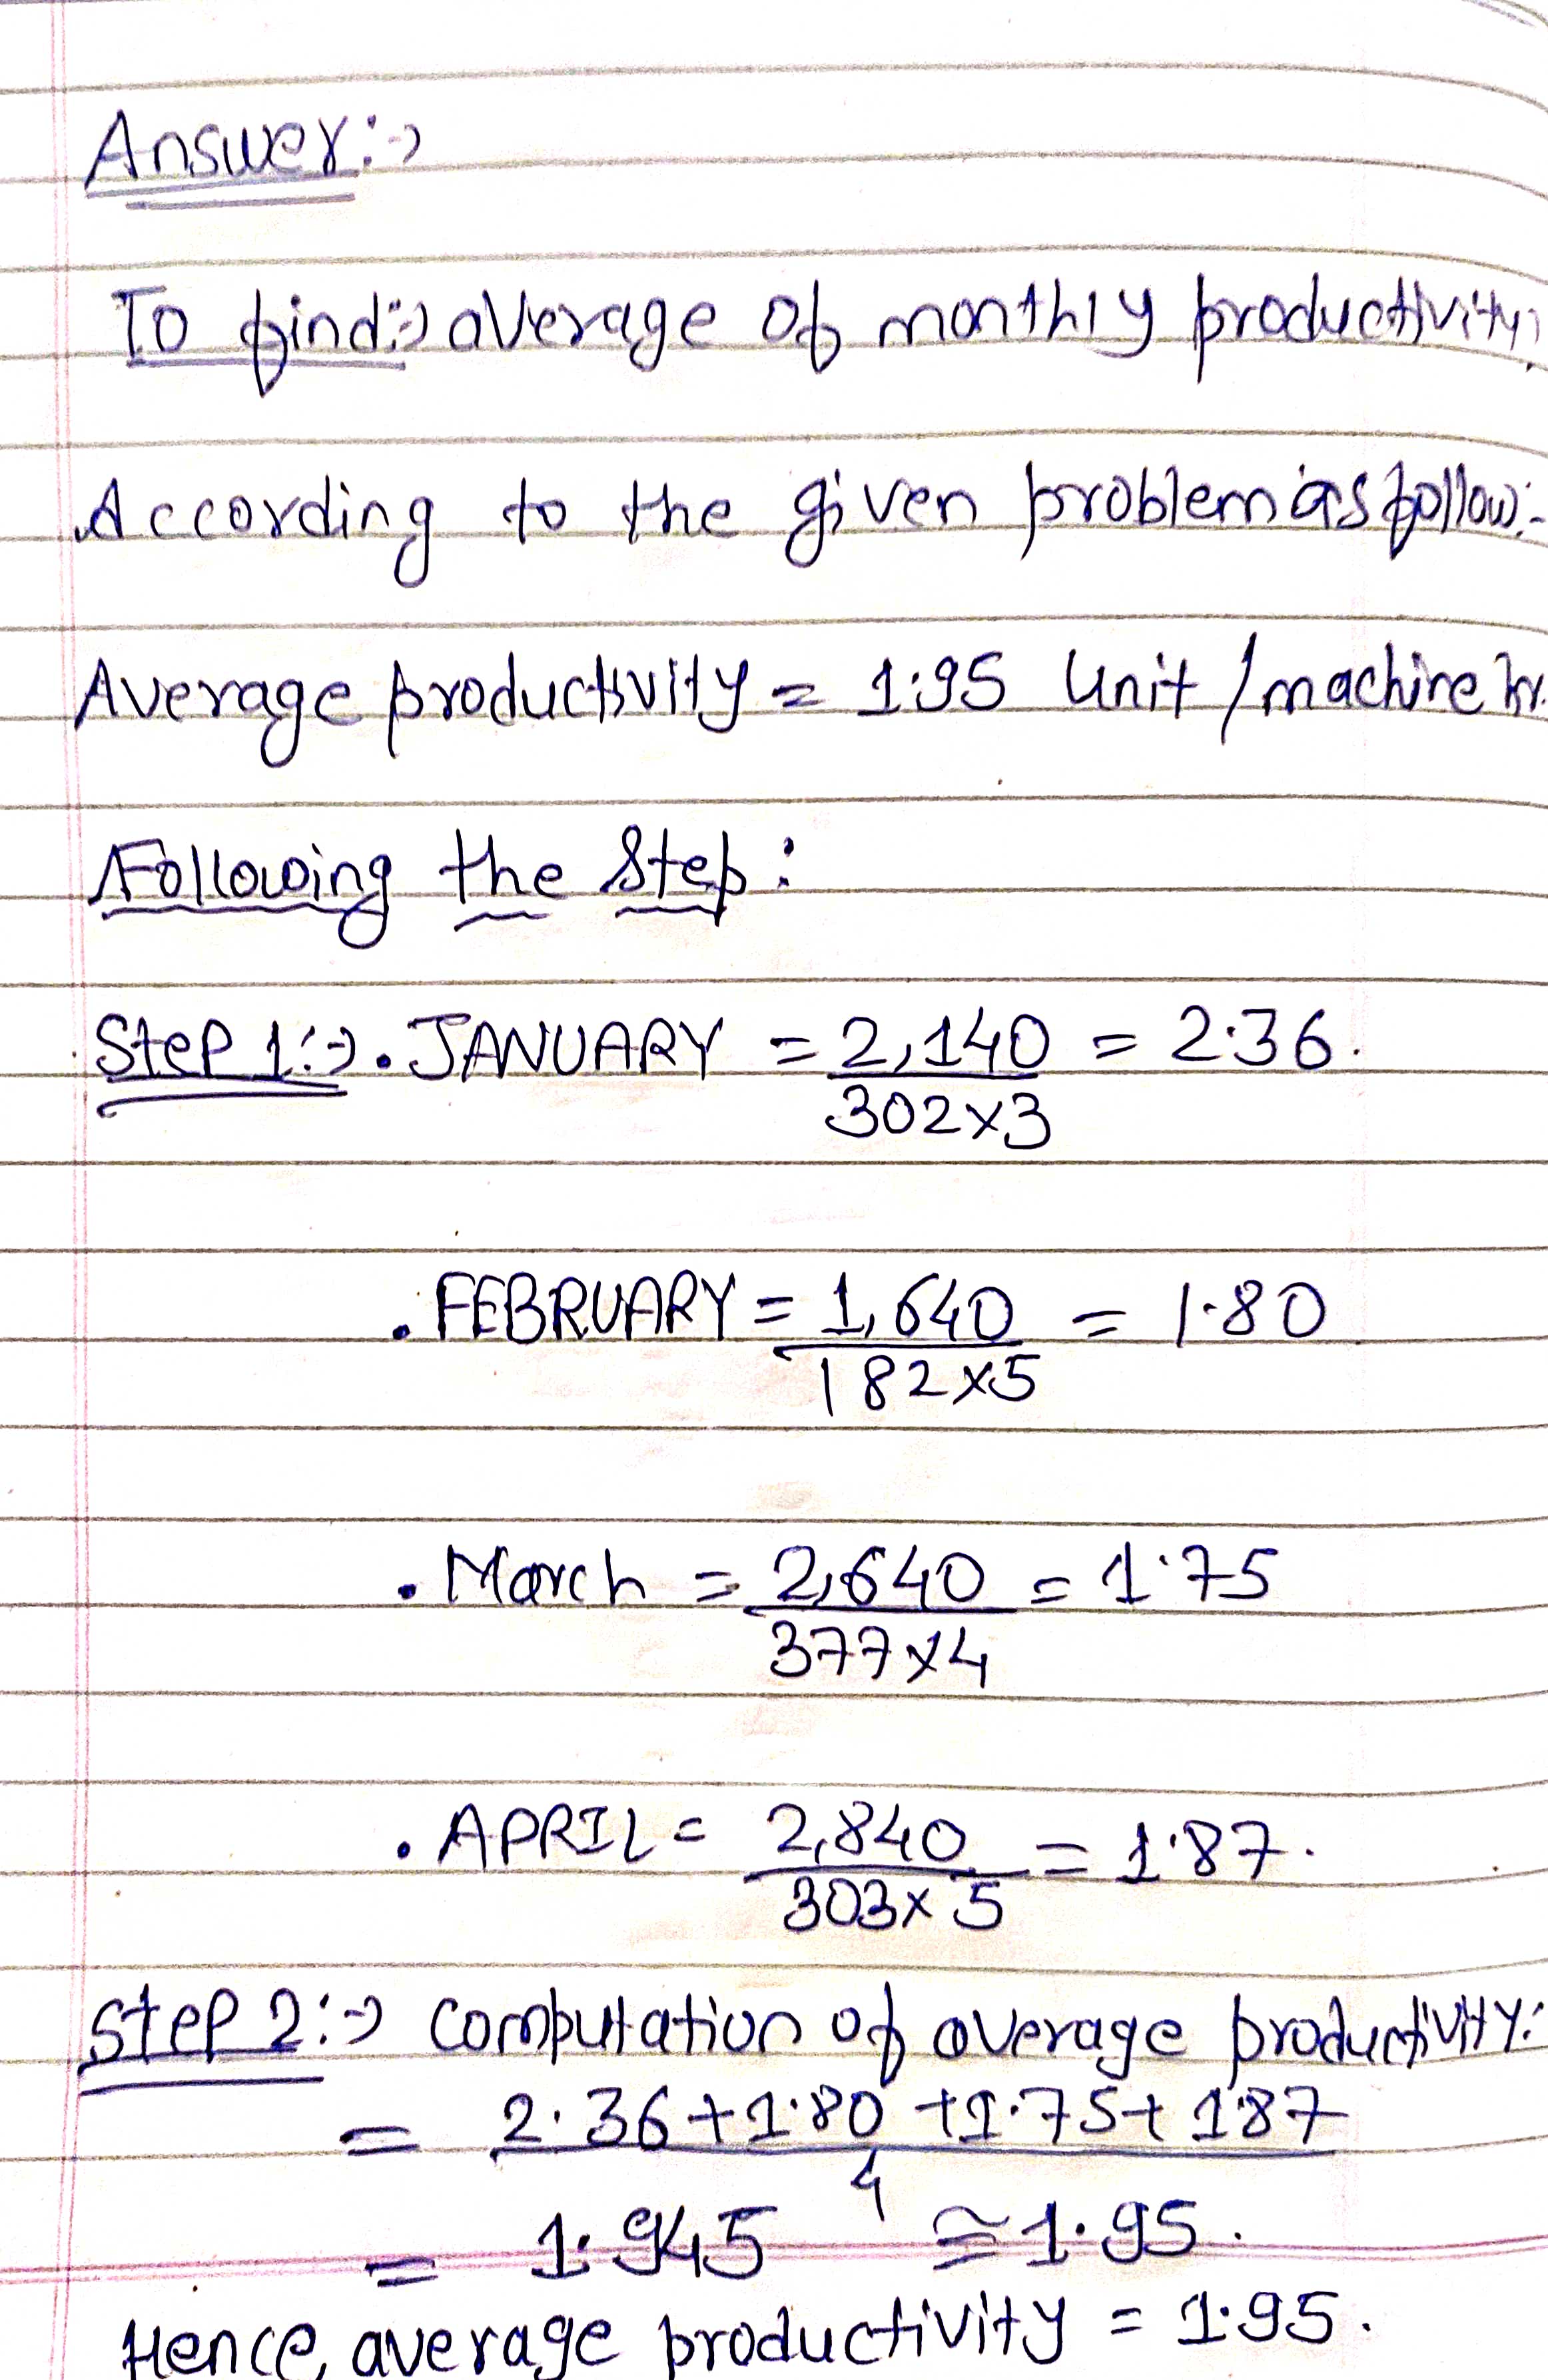 Answer:→
To find:→ average of monthly productivity.
According to the given problem as follow:-
Average productivity = 1.95 Unit / machine hr.
Following the Step:
Step 1:→ . JANUARY = 2,140 = 2.36.
302×3
. FEBRUARY = 1,640 = 1.80
182×5
. March = 2,640 = 1.75
377×4
. APRIL = 2,840 = 1.87.
303×5
Step 2:→ Computation of average productivity:
= 2.36+1.80+1.75+1.87
4
= 1.945 ≅ 1.95.
Hence, average productivity = 1.95.